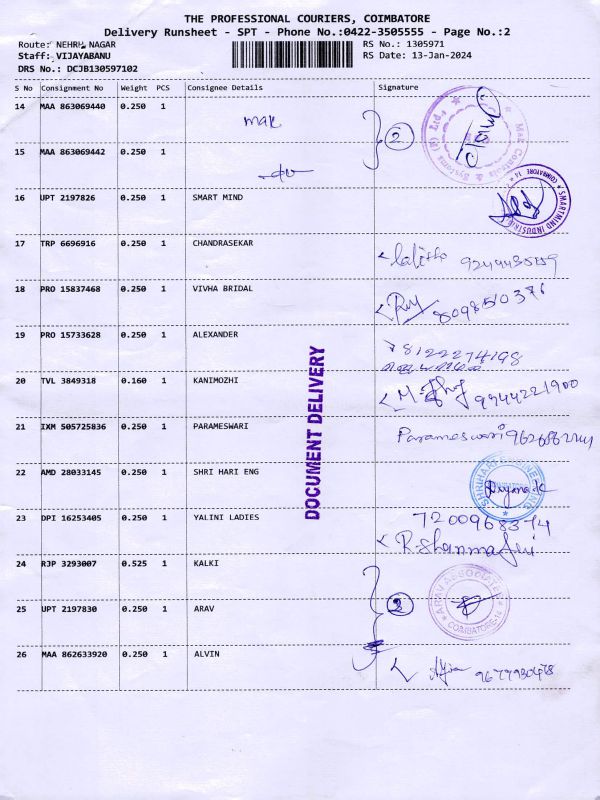 THE PROFESSIONAL COURIERS, COIMBATORE
Delivery Runsheet - SPT - Phone No.:0422-3505555 - Page No.:2
Route: NEHRU NAGAR
Staff: VIJAYABANU
DRS No.: DCJB130597102
RS No.: 1305971
RS Date: 13-Jan-2024
S No Consignment No Weight PCS Consignee Details Signature
14 MAA 863069440 0.250 1
mak
2
15 MAA 863069442 0.250 1
Mak Controls & Systems (P) Ltd
16 UPT 2197826 0.250 1 SMART MIND
SMARTMIND INDUSTRIES
COIMBATORE - 14
17 TRP 6696916 0.250 1 CHANDRASEKAR
18 PRO 15837468 0.250 1 VIVHA BRIDAL
19 PRO 15733628 0.250 1 ALEXANDER
8122274198
20 TVL 3849318 0.160 1 KANIMOZHI
9944221900
21 IXM 505725836 0.250 1 PARAMESWARI
Parameswari
22 AMD 28033145 0.250 1 SHRI HARI ENG
23 DPI 16253405 0.250 1 YALINI LADIES
7200968374
24 RJP 3293007 0.525 1 KALKI
2
25 UPT 2197830 0.250 1 ARAV
ARAV ASSOCIATES
COIMBATORE-14
26 MAA 862633920 0.250 1 ALVIN
9677930478
DOCUMENT DELIVERY